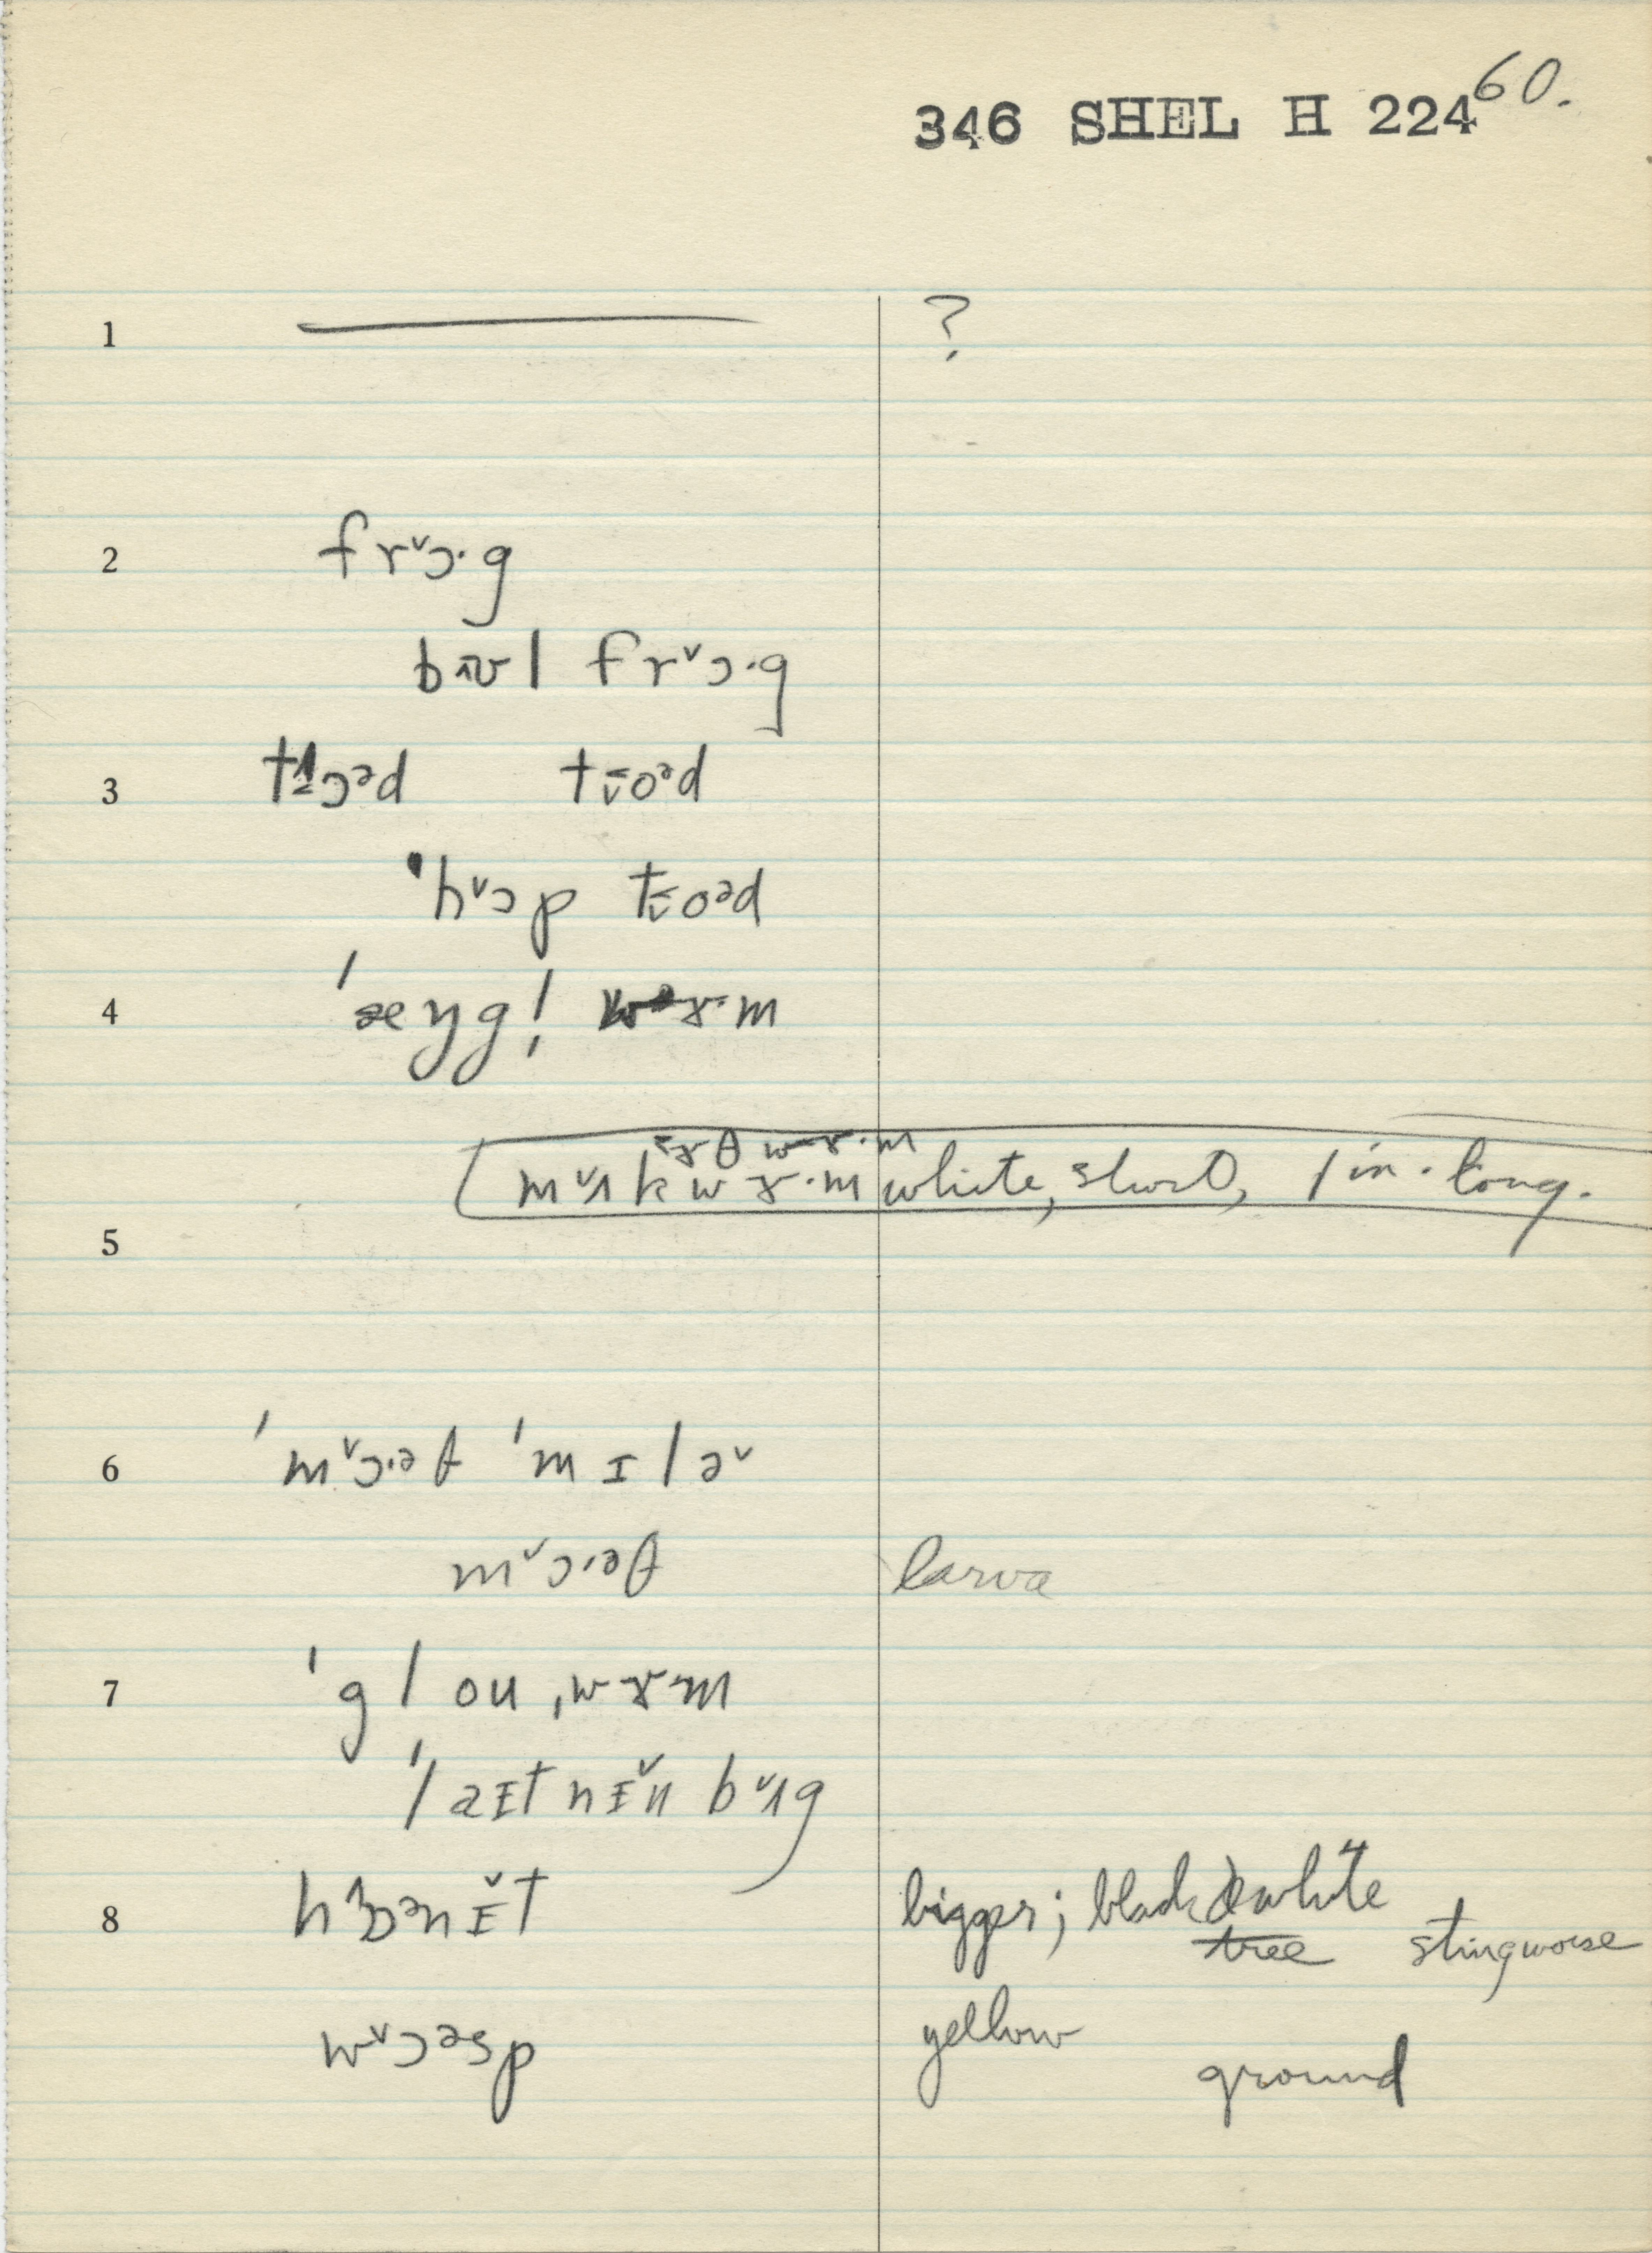 60.
346 SHEL H 224
1 ?
2 frɔ˅·g
bᴧʊl frɔ˅·g
3 tɔᵊd toᵊd
'hɔ˅p toᵊd
4 'æŋgl̩ wɝ·m
ɝθ wɝ·m
mʌ˅k wɝ·m white, short, 1 in. long.
5
6 'mɔ˅·əθ 'mɪlə˅
mɔ˅·əθ larva
7 'glou ˌwɝm
'laɪtnɪ˅n bʌ˅g
8 hɔᵊnɪ˅t bigger; black & white
tree sting worse
wɔ˅ᵊsp yellow
ground